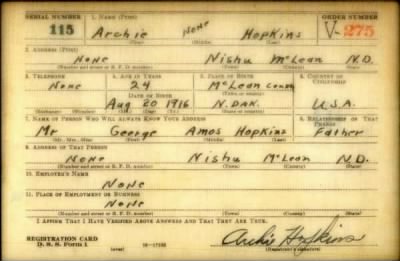 SERIAL NUMBER 1. NAME (Print) ORDER NUMBER
115 Archie None Hopkins V-275
(First) (Middle) (Last)
2. ADDRESS (Print)
None Nishu McLean N.D.
(Number and street or R. F. D. number) (Town) (County) (State)
3. TELEPHONE 4. AGE IN YEARS 5. PLACE OF BIRTH 6. COUNTRY OF CITIZENSHIP
None 24 McLean County
DATE OF BIRTH (Town or county)
Aug 20 1916 N. DAK. U.S.A.
(Exchange) (No.) (Mo.) (Day) (Yr.) (State or country)
7. NAME OF PERSON WHO WILL ALWAYS KNOW YOUR ADDRESS 8. RELATIONSHIP OF THAT PERSON
Mr George Amos Hopkins Father
(Mr., Mrs., Miss) (First) (Middle) (Last)
9. ADDRESS OF THAT PERSON
None Nishu McLean N.D.
(Number and street or R. F. D. number) (Town) (County) (State)
10. EMPLOYER'S NAME
None
11. PLACE OF EMPLOYMENT OR BUSINESS
None
(Number and street or R. F. D. number) (Town) (County) (State)
I AFFIRM THAT I HAVE VERIFIED ABOVE ANSWERS AND THAT THEY ARE TRUE.
REGISTRATION CARD
D. S. S. Form 1 (over) 16-17105 Archie Hopkins